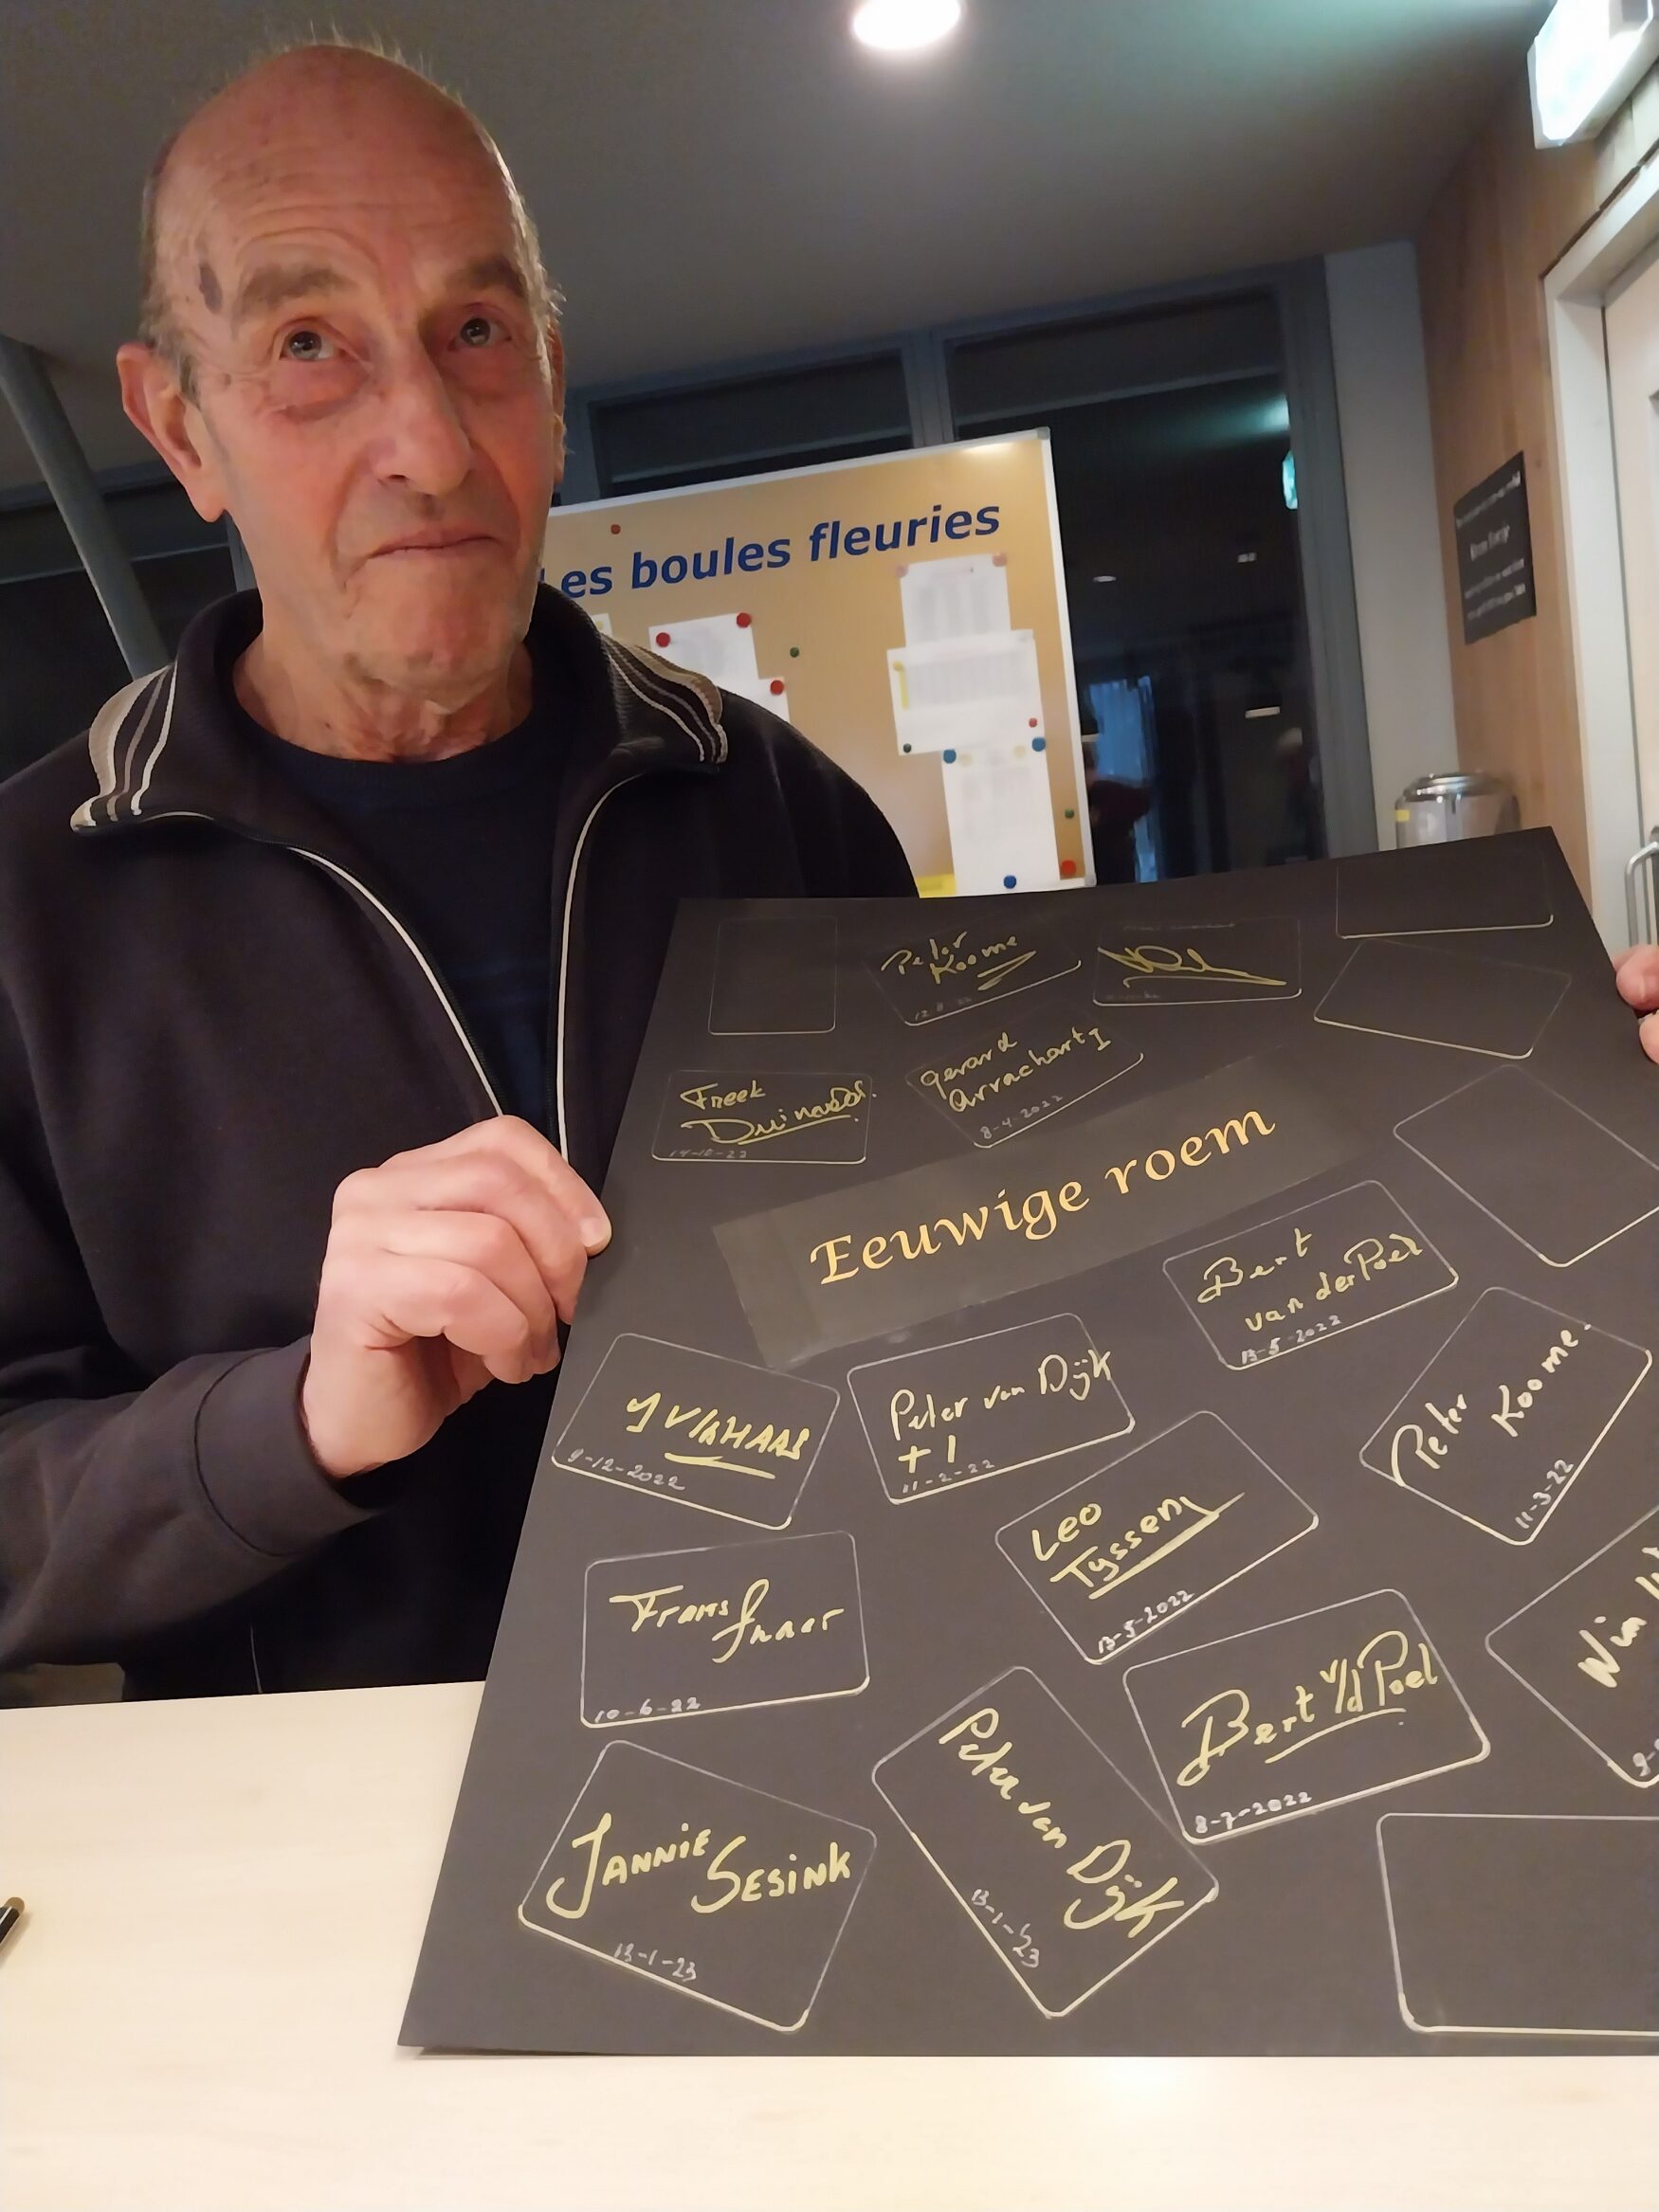 es boules fleuries
Peter
Koome
Freek
14-10-22
gerard
Arrachart I
8-4-2022
Eeuwige roem
Bert
van der Poel
13-5-2022
9-12-2022
Peter van Dijk
+ 1
11-2-22
Peter
Koome.
11-3-22
Leo
Tyssen
13-5-2022
Frans
10-6-22
Bert v/d Poel
8-7-2022
Wim
Jannie
Sesink
13-1-23
Peter van
Dijk
13-1-23